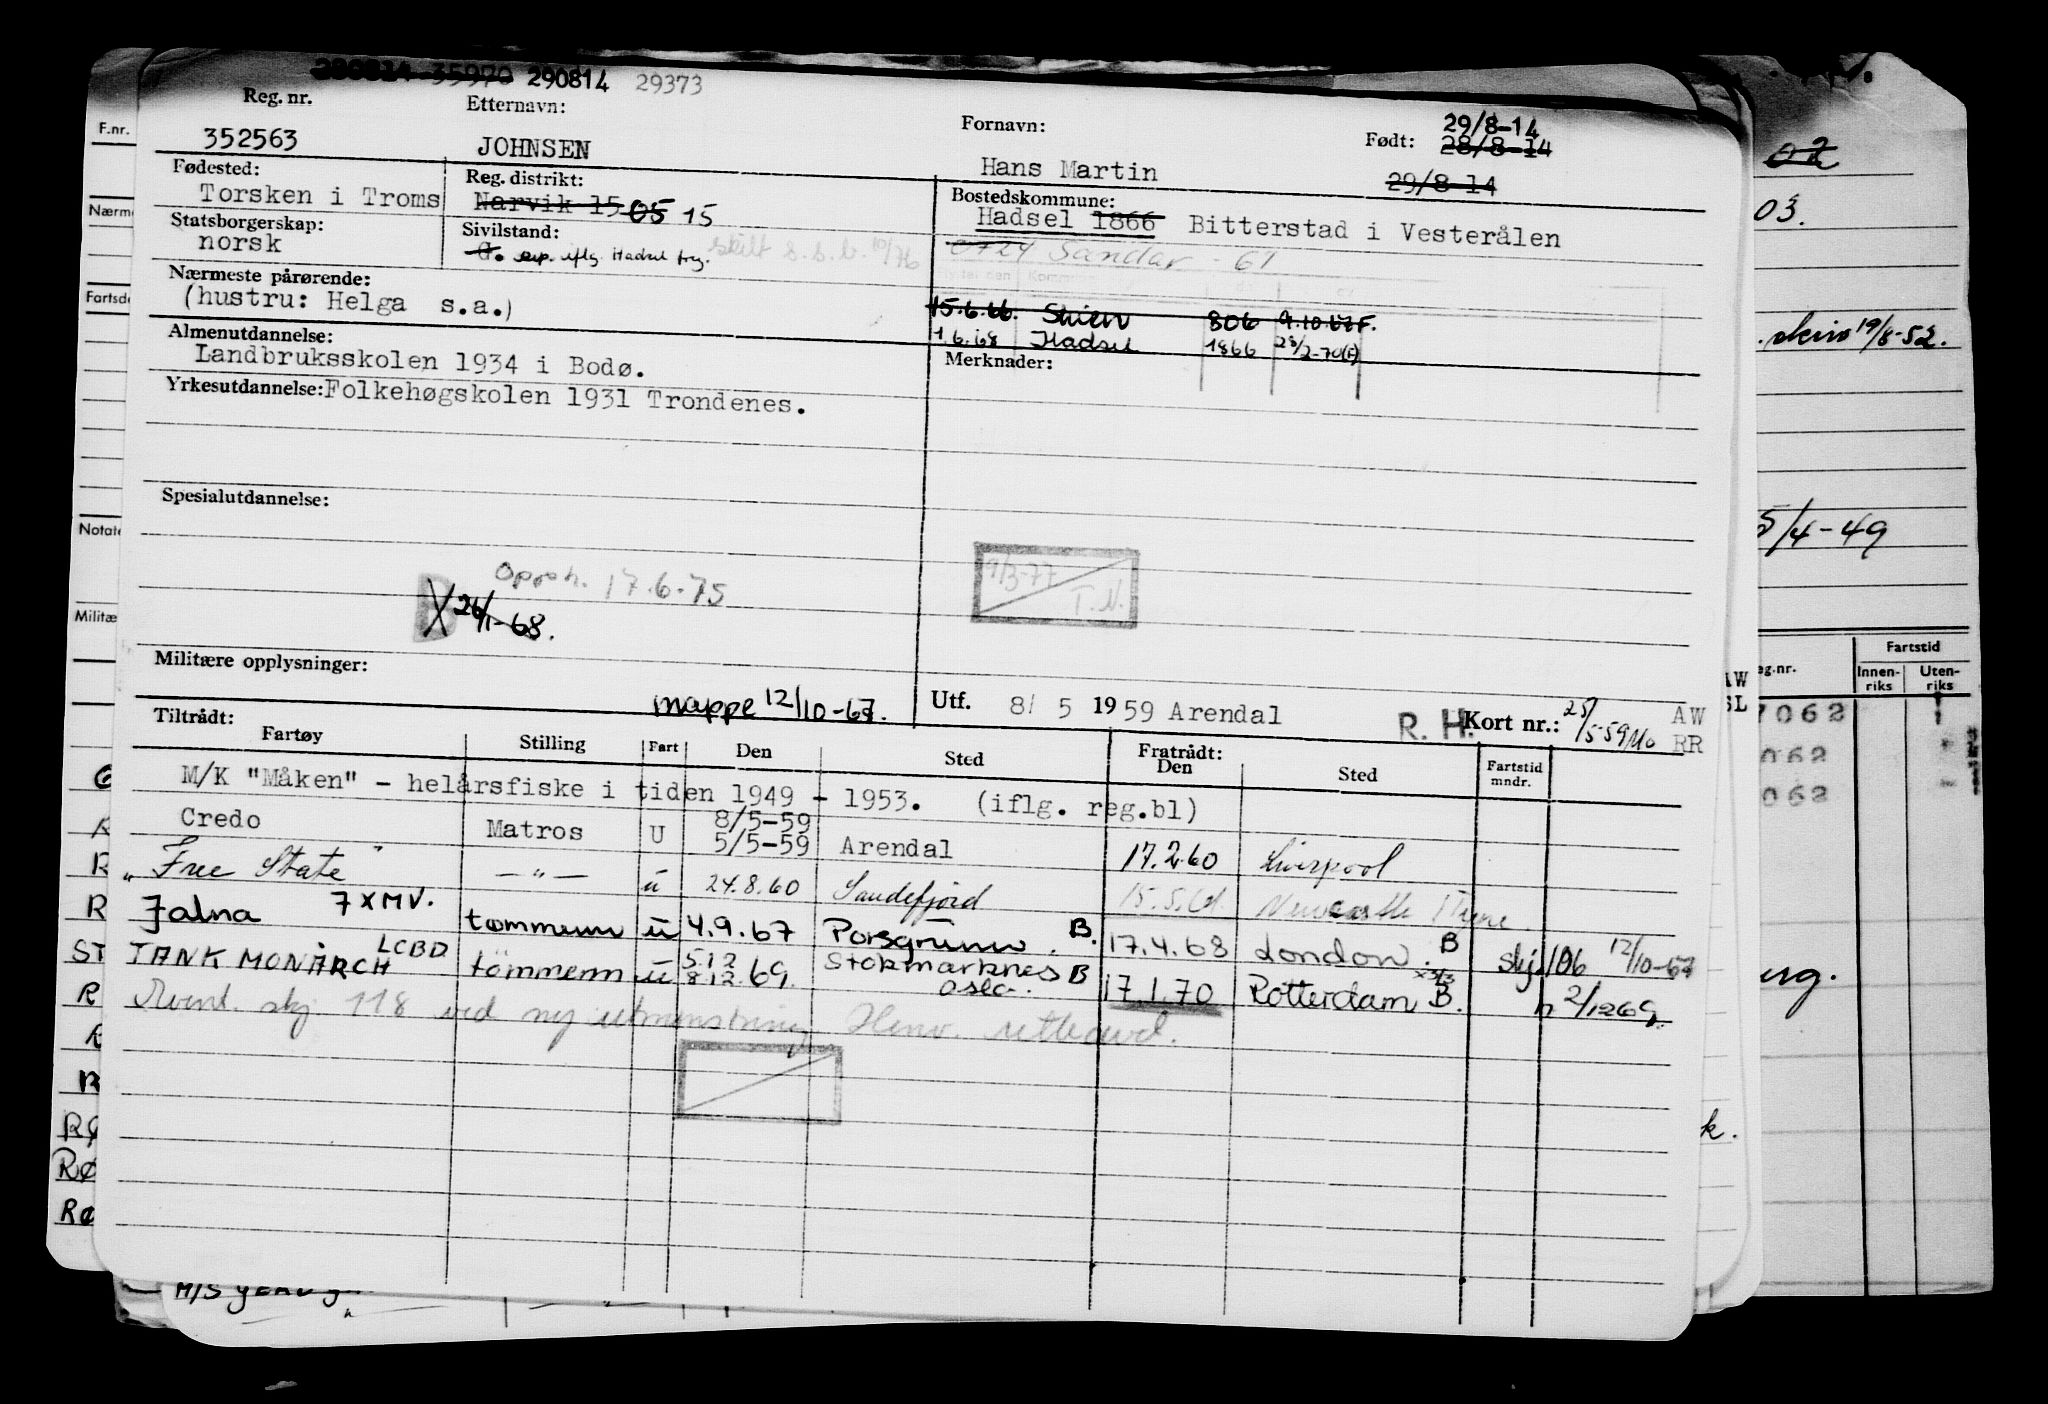 280814 35970 290814 29373
Reg. nr. Etternavn: Fornavn: Født: 29/8-14
352563 JOHNSEN Hans Martin 28/8-14
29/8-14
Fødested: Reg. distrikt: Bostedskommune:
Torsken i Troms Narvik 15 05 15 Hadsel 1866 Bitterstad i Vesterålen
Statsborgerskap: Sivilstand: 0724 Sandar - 61
norsk G. iflg. Hadsel skilt s.s.b. 10/76
Nærmeste pårørende:
(hustru: Helga s.a.) 15.6.66. Skien 806 9.10.67F.
Almenutdannelse: 1.6.68 Hadsel 1866 28/2-70(F)
Landbruksskolen 1934 i Bodø. Merknader:
Yrkesutdannelse: Folkehøgskolen 1931 Trondenes.
Spesialutdannelse:
Opph. 17.6.75 9/3-77 T.N.
B X 26/1-68.
Militære opplysninger:
mappe 12/10-67. Utf. 8/ 5 1959 Arendal R. H. Kort nr.: 25/5-59 AW
RR
Tiltrådt: Fratrådt:
Fartøy Stilling Fart Den Sted Den Sted Fartstid mndr.
M/K "Måken" - helårsfiske i tiden 1949 - 1953. (iflg. reg.bl)
Credo Matros U 8/5-59 5/5-59 Arendal 17.2.60 Liverpool
"Free State" — " — u 24.8.60 Sandefjord 15.5.61 Newcastle Tyne.
Jalna 7XMV. tømmerm u 4.9.67 Porsgrunn. B. 17.4.68 London. B skj. 106 12/10-67
TANK MONARCH LCBD tömmerm u 5.12 8.12.69. Stokmarknes Oslo. B 17.1.70 Rotterdam B. n 2/1269.
skj 118 ved ny utmønstring Henv.
F.nr.
Nærm
Fartsd
Notate
Militæ
03.
19/8-52.
5/4-49
eg.nr. Fartstid
Innen-riks Uten-riks
AW
SL
7062
062
062
ST
R
RØ
RØ
k.
M/S